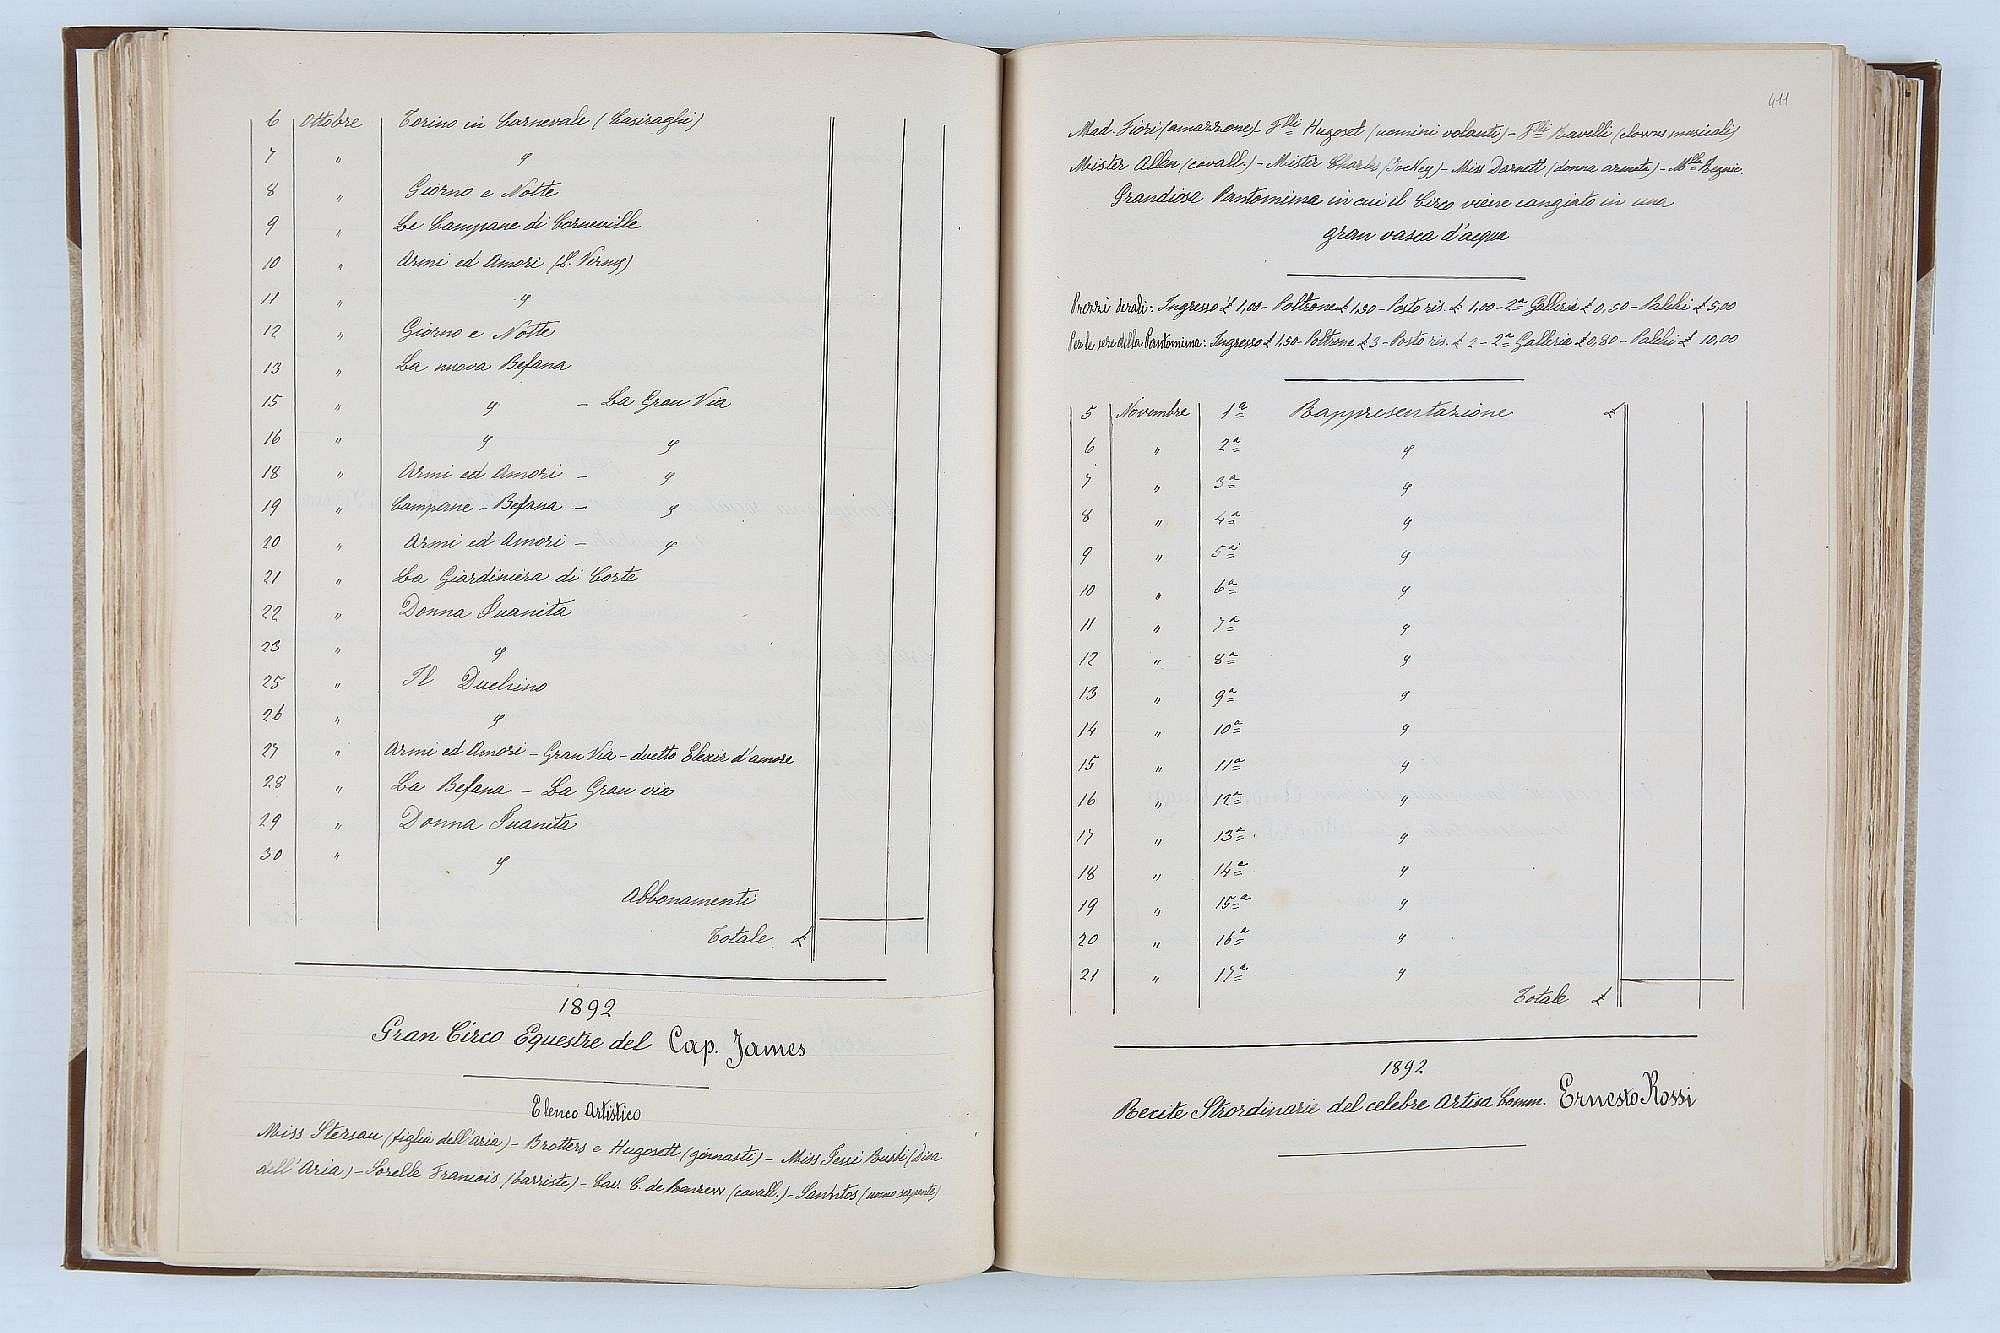 6 Ottobre Torino in Carnevale (Casiraghi)
7 " "
8 " Giorno e Notte
9 " Le Campane di Corneville
10 " Armi ed Amori (L. Verney)
11 " "
12 " Giorno e Notte
13 " La nuova Befana
15 " " - La Gran Via
16 " " "
18 " Armi ed Amori - "
19 " Campane - Befana - "
20 " Armi ed Amori - "
21 " La Giardiniera di Corte
22 " Donna Juanita
23 " "
25 " Il Duchino
26 " "
27 " Armi ed Amori - Gran Via - duetto Elexir d'amore
28 " La Befana - La Gran via
29 " Donna Juanita
30 " "
Abbonamenti
Totale £
1892
Gran Circo Equestre del Cap. James
Elenco Artistico
Miss Stersan (figlia dell'aria) - Brotters e Hugosett (ginnasti) - Miss Jessi Buski (Diva
dell'Aria) - Sorelle François (barriste) - Cav. C. de (cavall.) - Santos (uomo serpente)
411
Mad. Fiori (amazzone) - F.lli Hugoset (uomini volanti) - F.lli Ravelli (clowns musicali)
Meister Allan (cavall.) - Mister Charles (Jockey) - Miss Darnett (donna armata) - M.lle
Grandiosa Pantomima in cui il Circo viene cangiato in una
gran vasca d'acqua
Prezzi serali: Ingresso £ 1,00 - Poltrone £ 1,50 - Posto ris. £ 1,00 - 2ª Galleria £ 0,50 - Palchi £ 5,00
Per le sere della Pantomima: Ingresso £ 1,50 - Poltrone £ 3 - Posto ris. £ 2 - 2ª Galleria £ 0,80 - Palchi £ 10,00
5 Novembre 1ª Rappresentazione £
6 " 2ª "
7 " 3ª "
8 " 4ª "
9 " 5ª "
10 " 6ª "
11 " 7ª "
12 " 8ª "
13 " 9ª "
14 " 10ª "
15 " 11ª "
16 " 12ª "
17 " 13ª "
18 " 14ª "
19 " 15ª "
20 " 16ª "
21 " 17ª "
Totale £
1892
Recite Strordinarie del celebre Artisa Comm. Ernesto Rossi